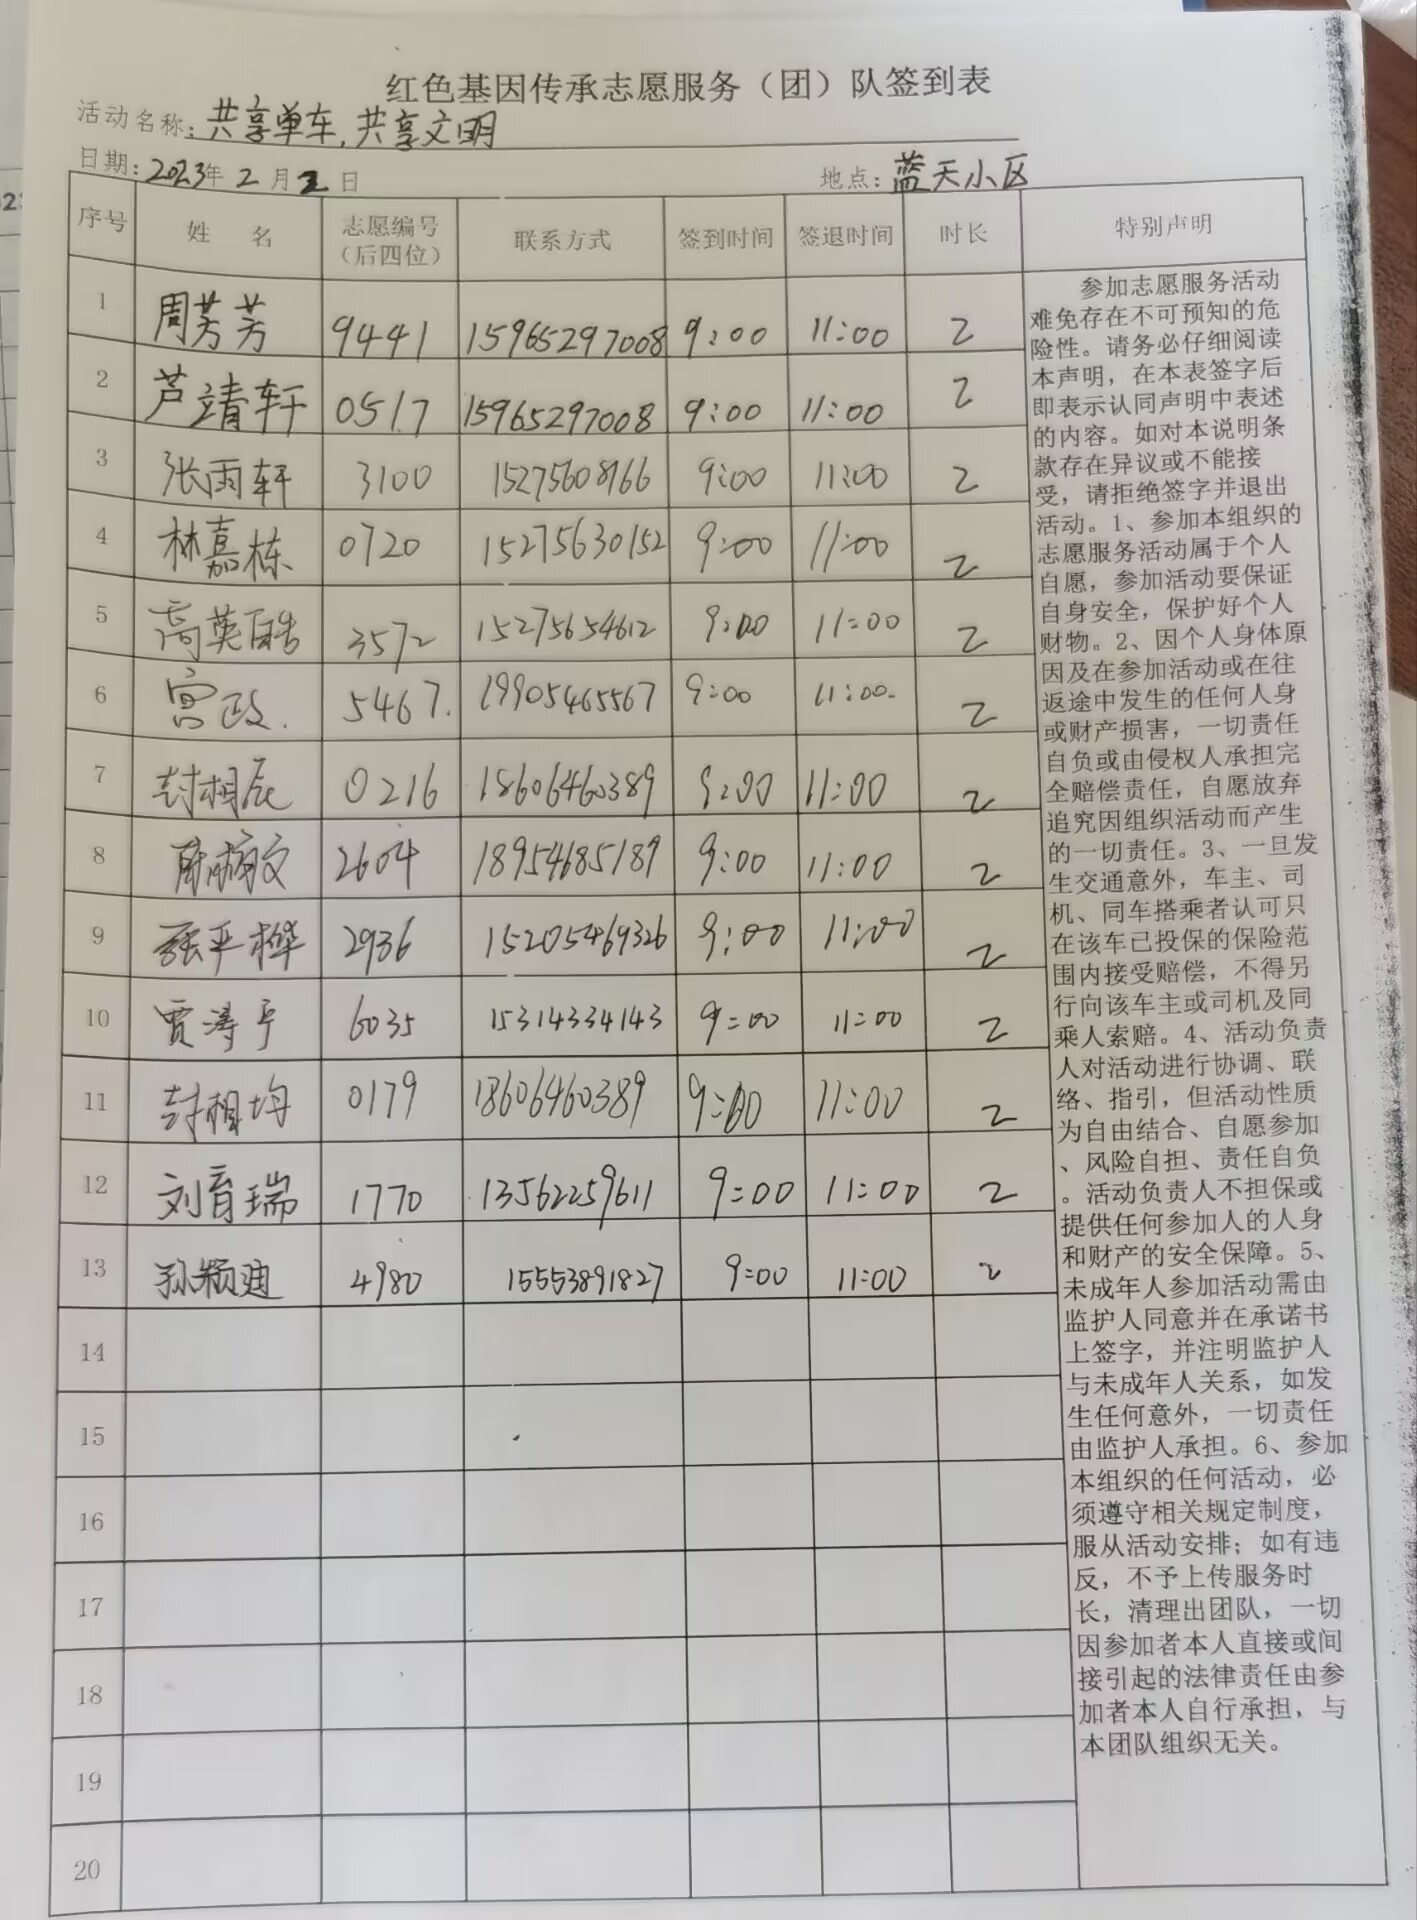 红色基因传承志愿服务（团）队签到表
活动名称：共享单车，共享文明
日期：2023年2月2日 地点：蓝天小区
序号 姓名 志愿编号（后四位） 联系方式 签到时间 签退时间 时长 特别声明
1 周芳芳 9441 15965297008 9:00 11:00 2
2 芦靖轩 0517 15965297008 9:00 11:00 2
3 张雨轩 3100 15275608966 9:00 11:00 2
4 林嘉栋 0720 15275630152 9:00 11:00 2
5 高英皓 3572 15275654612 9:00 11:00 2
6 宫政. 5467. 19905465567 9:00 11:00 2
7 封相辰 0216 18606460389 9:00 11:00 2
8 2604 18954685189 9:00 11:00 2
9 2936 15205469326 9:00 11:00 2
10 贾涛 6035 15314334143 9:00 11:00 2
11 封相均 0179 18606460389 9:00 11:00 2
12 刘育瑞 1770 13562259611 9:00 11:00 2
13 孙颖迪 4980 15553891827 9:00 11:00 2
14
15
16
17
18
19
20
参加志愿服务活动
难免存在不可预知的危
险性。请务必仔细阅读
本声明，在本表签字后
即表示认同声明中表述
的内容。如对本说明条
款存在异议或不能接
受，请拒绝签字并退出
活动。1、参加本组织的
志愿服务活动属于个人
自愿，参加活动要保证
自身安全，保护好个人
财物。2、因个人身体原
因及在参加活动或在往
返途中发生的任何人身
或财产损害，一切责任
自负或由侵权人承担完
全赔偿责任，自愿放弃
追究因组织活动而产生
的一切责任。3、一旦发
生交通意外，车主、司
机、同车搭乘者认可只
在该车已投保的保险范
围内接受赔偿，不得另
行向该车主或司机及同
乘人索赔。4、活动负责
人对活动进行协调、联
络、指引，但活动性质
为自由结合、自愿参加
、风险自担、责任自负
。活动负责人不担保或
提供任何参加人的人身
和财产的安全保障。5、
未成年人参加活动需由
监护人同意并在承诺书
上签字，并注明监护人
与未成年人关系，如发
生任何意外，一切责任
由监护人承担。6、参加
本组织的任何活动，必
须遵守相关规定制度，
服从活动安排；如有违
反，不予上传服务时
长，清理出团队，一切
因参加者本人直接或间
接引起的法律责任由参
加者本人自行承担，与
本团队组织无关。